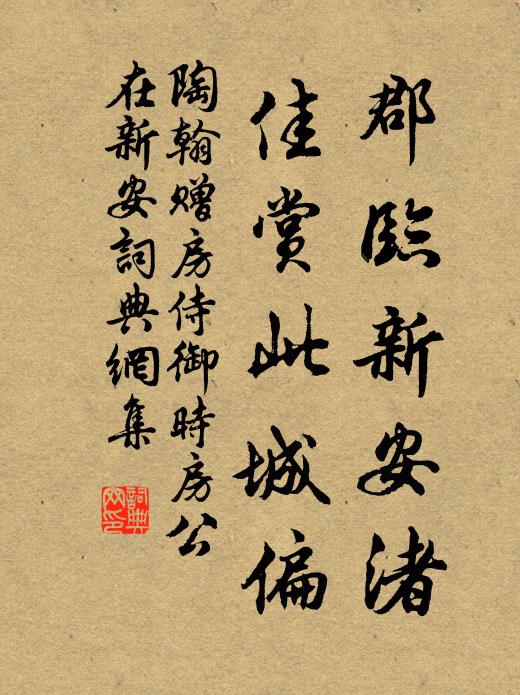 郡臨新安渚
佳賞此城偏
陶翰赠房侍御時房公
在新安詞典網集
詞典网印